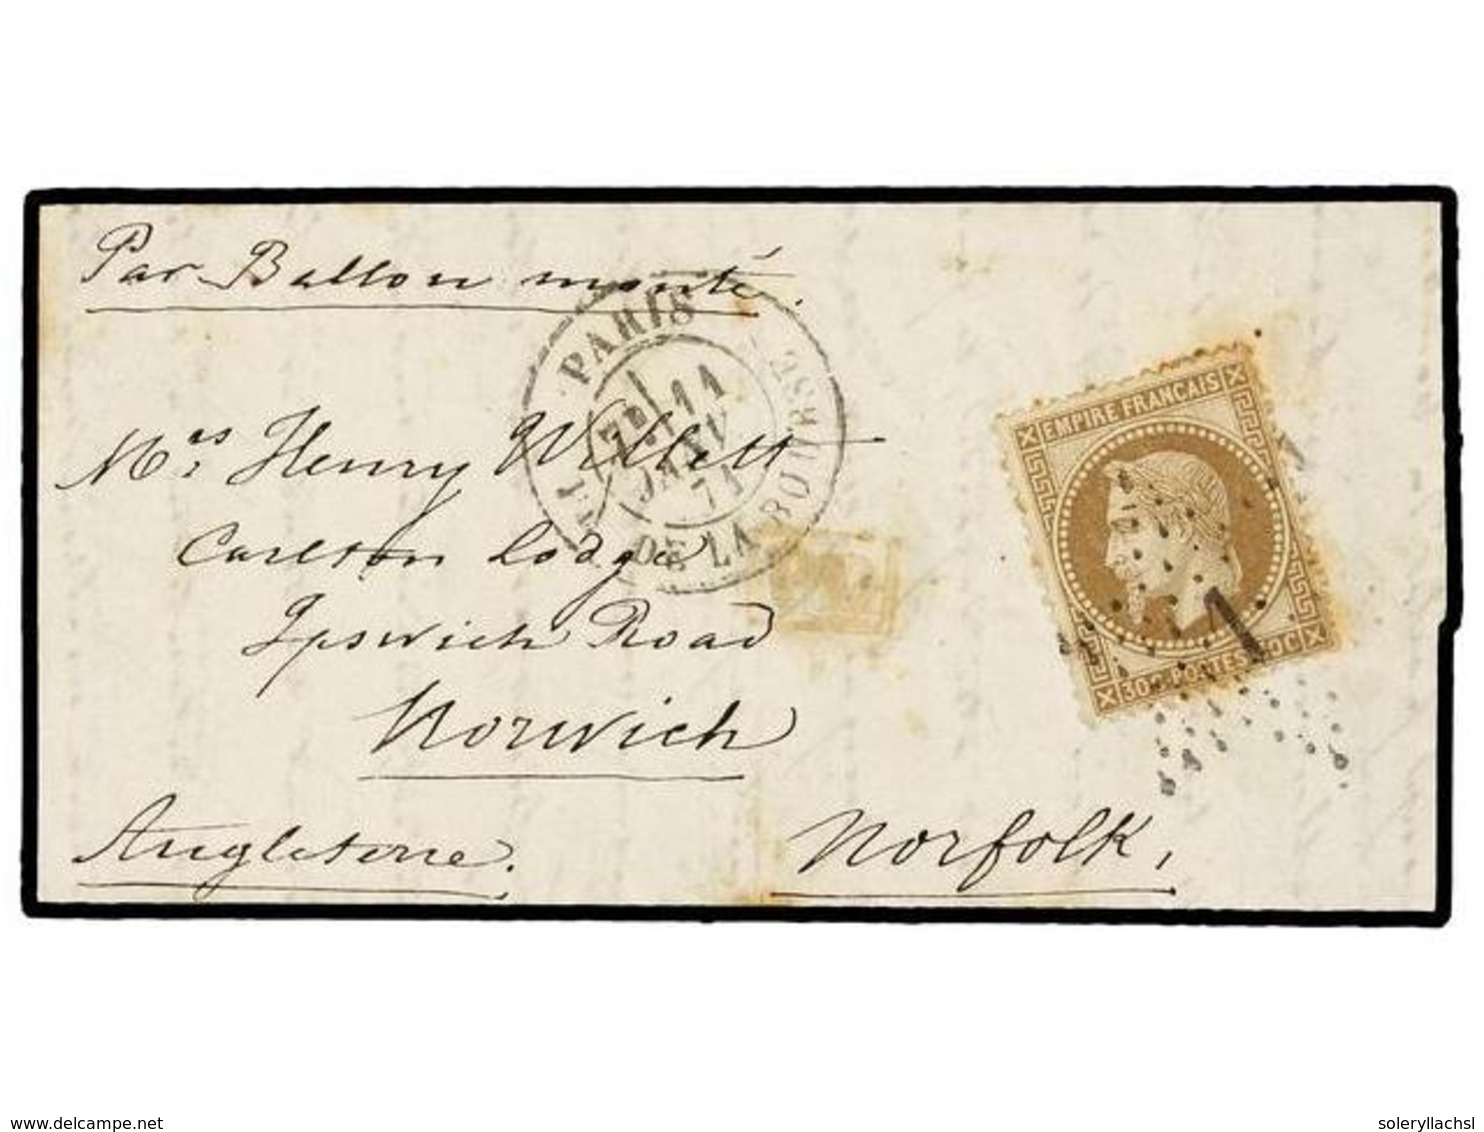 Par Ballon monté.
PARIS
11
JANV
71
DE LA BOURSE
Mrs Henry Willett
Carlton Lodge
Ipswich Road
Norwich
Angleterre.
Norfolk,
EMPIRE FRANÇAIS
30C POSTES 30C
1
delcampe.net
soleryllachsl